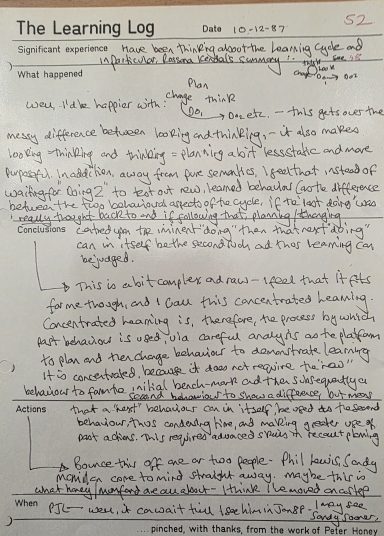 52
The Learning Log
Date 10-12-87
Significant experience Have been thinking about the Learning Cycle and
in particular, Rosanna Kendal's summary :- think see 48
change look
Do1 → Do2
What happened
Plan
change think
Well, I'd be happier with: Do1 → Do2 etc. - this gets over the
messy difference between looking and thinking, - it also makes
looking - thinking and thinking = planning a bit less static and more
purposeful. In addition, away from pure semantics, I feel that instead of
waiting for "Doing 2" to test out new, learned behaviour (as the difference
between the two behavioural aspects of the cycle, if the last doing was
really thought back to and if following that, planning/changing
Conclusions centred upon the iminent "doing" then that next "doing"
can in itself be the second such and thus learning can
be judged.
This is a bit complex and raw - I feel that it fits
for me though, and I call this concentrated learning.
Concentrated learning is, therefore, the process by which
past behaviour is used via careful analysis as the platform
to plan and then change behaviour to demonstrate learning
It is concentrated, because it does not require the "new"
behaviour to form the initial bench-mark and then subsequently a
second behaviour to show a difference, but means
Actions that a "next" behaviour can in itself be used as the second
behaviour, thus condensing time, and making greater use of
past actions. This requires advanced skills in recent planning
Bounce this off one or two people - Phil Lewis, Sandy
come to mind straight away. maybe this is
what honey/mumford are all about - I think I've moved on a step
When PJL - well, it can wait till I see him in Jan 88 - I may see
Sandy sooner.
.... pinched, with thanks, from the work of Peter Honey